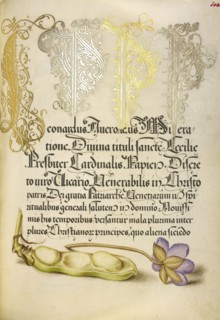 eonardus Theronicus Mi era
tione Divina tituli sancte Cecilie
Presbiter Cardinalis Papien. Discre
to viro Vicario Venerabilis in Christo
patris Dei gratia Patriarche Venetiarum in Spi
ritualibus generali salutem in domino Novissi
mis his temporibus versantur mala plurima inter
plures Christianos principes, quo aliena